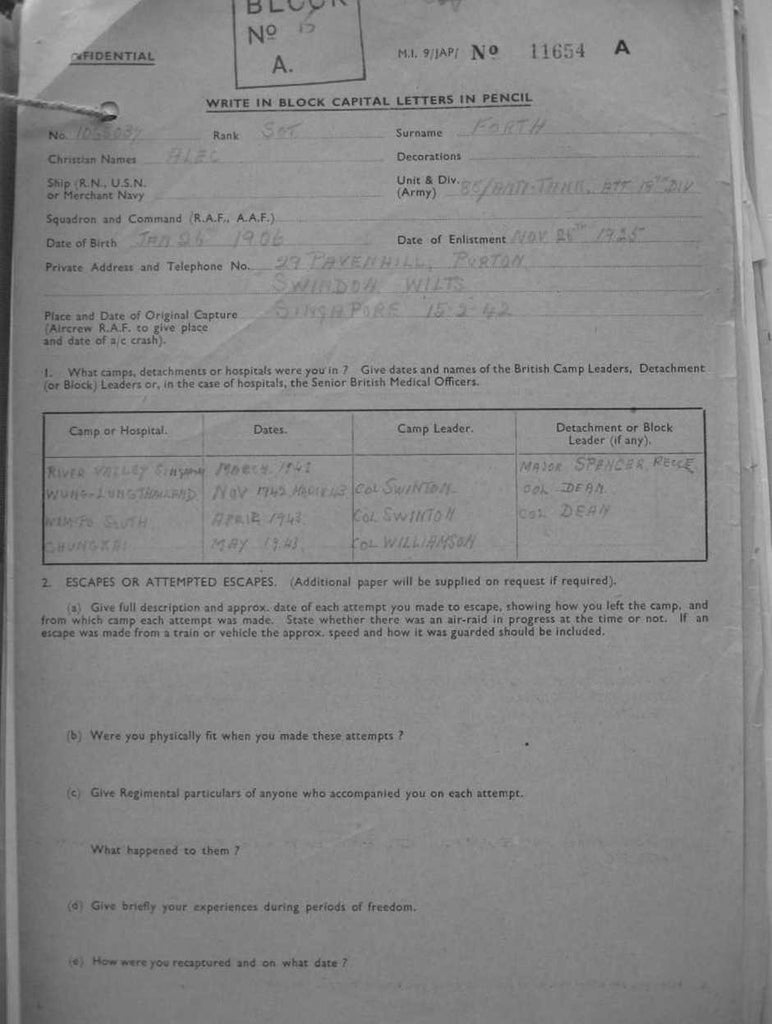 BLOCK
Nº
A.
FIDENTIAL
M.I. 9/JAP/ Nº 11654 A
WRITE IN BLOCK CAPITAL LETTERS IN PENCIL
No. Rank SGT Surname FORTH
Christian Names ALEC Decorations
Ship (R.N., U.S.N. or Merchant Navy Unit & Div. (Army) 85/ANTI-TANK, ATT 18TH DIV
Squadron and Command (R.A.F., A.A.F.)
Date of Birth JAN 26 1906 Date of Enlistment NOV 25TH 1925
Private Address and Telephone No. 29 PAVENHILL, PURTON
SWINDON, WILTS
Place and Date of Original Capture SINGAPORE 15-2-42
(Aircrew R.A.F. to give place
and date of a/c crash).
1. What camps, detachments or hospitals were you in ? Give dates and names of the British Camp Leaders, Detachment
(or Block) Leaders or, in the case of hospitals, the Senior British Medical Officers.
Camp or Hospital. Dates. Camp Leader. Detachment or Block Leader (if any).
RIVER VALLEY MARCH 1942 MAJOR SPENCER
NOV 1942 COL SWINTON COL DEAN
SOUTH APRIL 1943 COL SWINTON COL DEAN
CHUNGKAI MAY 1943 COL WILLIAMSON
2. ESCAPES OR ATTEMPTED ESCAPES. (Additional paper will be supplied on request if required).
(a) Give full description and approx. date of each attempt you made to escape, showing how you left the camp, and
from which camp each attempt was made. State whether there was an air-raid in progress at the time or not. If an
escape was made from a train or vehicle the approx. speed and how it was guarded should be included.
(b) Were you physically fit when you made these attempts ?
(c) Give Regimental particulars of anyone who accompanied you on each attempt.
What happened to them ?
(d) Give briefly your experiences during periods of freedom.
(e) How were you recaptured and on what date ?